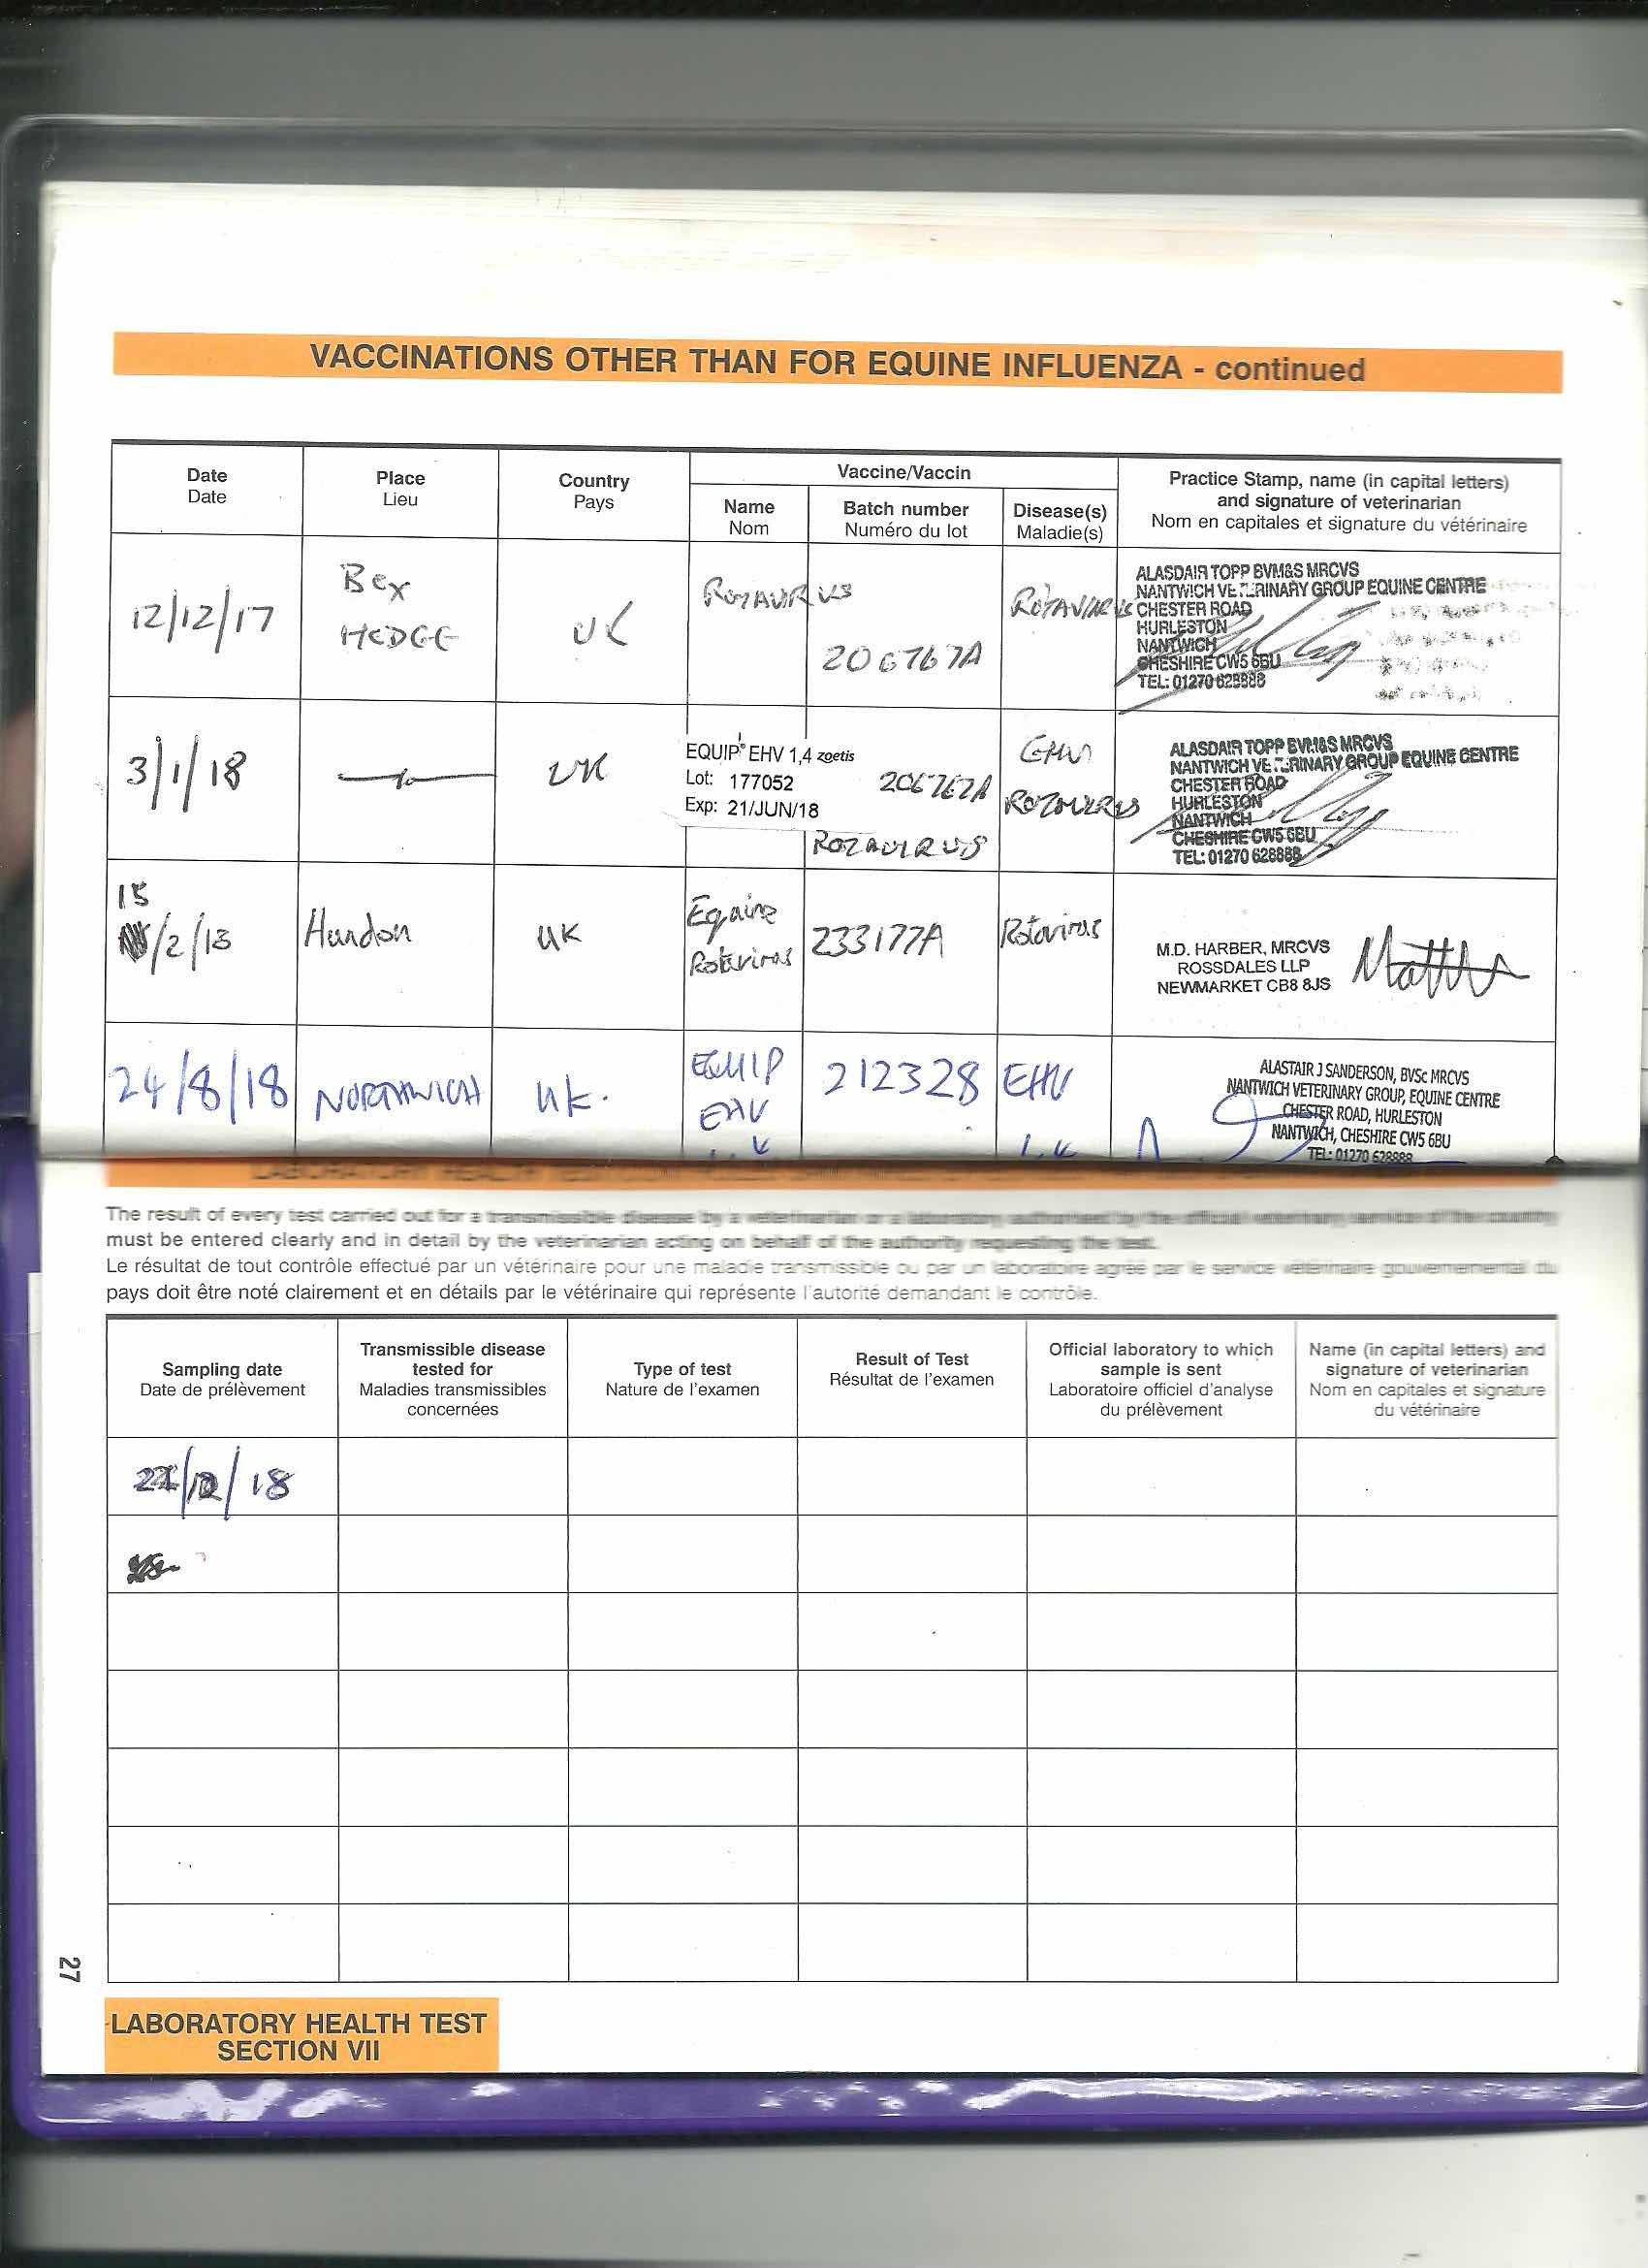 VACCINATIONS OTHER THAN FOR EQUINE INFLUENZA - continued
Date
Date
Place
Lieu
Country
Pays
Vaccine/Vaccin
Name
Nom
Batch number
Numéro du lot
Disease(s)
Maladie(s)
Practice Stamp, name (in capital letters)
and signature of veterinarian
Nom en capitales et signature du vétérinaire
12/12/17
Bex
HEDGE
UK
ROTAVIRUS
206767A
ROTAVIRUS
ALASDAIR TOPP BVM&S MRCVS
NANTWICH VETERINARY GROUP EQUINE CENTRE
CHESTER ROAD
HURLESTON
NANTWICH
CHESHIRE CW5 6BU
TEL: 01270 628888
3/1/18
UK
EQUIP® EHV 1,4 zoetis
Lot: 177052
Exp: 21/JUN/18
206767A
ROTAVIRUS
EHV
ROTAVIRUS
ALASDAIR TOPP BVM&S MRCVS
NANTWICH VETERINARY GROUP EQUINE CENTRE
CHESTER ROAD
HURLESTON
NANTWICH
CHESHIRE CW5 6BU
TEL: 01270 628888
15
/2/18
Hundon
UK
Equine
Rotavirus
233177A
Rotavirus
M.D. HARBER, MRCVS
ROSSDALES LLP
NEWMARKET CB8 8JS
24/8/18
NORTHWICH
UK.
EQUIP
EHV
212328
EHV
ALASTAIR J SANDERSON, BVSc MRCVS
NANTWICH VETERINARY GROUP, EQUINE CENTRE
CHESTER ROAD, HURLESTON
NANTWICH, CHESHIRE CW5 6BU
TEL: 01270 628888
LABORATORY HEALTH TEST
The result of every test carried out for a transmissible disease by a veterinarian or a laboratory authorised by the official veterinary service of the country
must be entered clearly and in detail by the veterinarian acting on behalf of the authority requesting the test.
Le résultat de tout contrôle effectué par un vétérinaire pour une maladie transmissible ou par un laboratoire agréé par le service vétérinaire gouvernemental du
pays doit être noté clairement et en détails par le vétérinaire qui représente l'autorité demandant le contrôle.
Sampling date
Date de prélèvement
Transmissible disease
tested for
Maladies transmissibles
concernées
Type of test
Nature de l'examen
Result of Test
Résultat de l'examen
Official laboratory to which
sample is sent
Laboratoire officiel d'analyse
du prélèvement
Name (in capital letters) and
signature of veterinarian
Nom en capitales et signature
du vétérinaire
/18
27
LABORATORY HEALTH TEST
SECTION VII